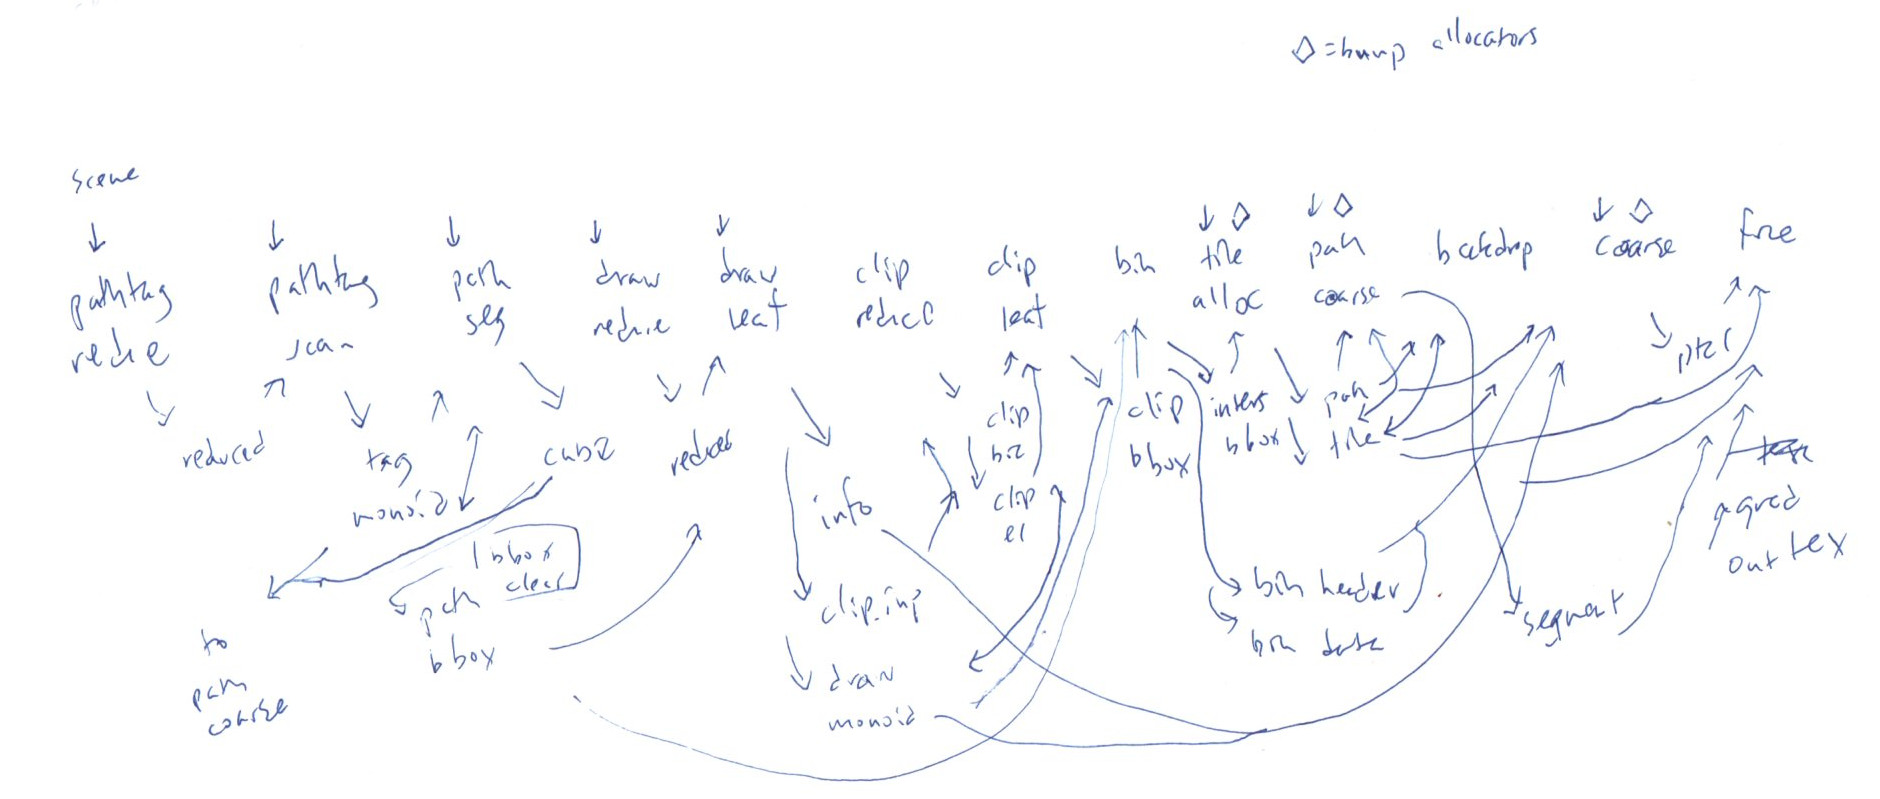 ◇ = bump allocators
scene
pathtag
reduce
pathtag
scan
path
seg
draw
reduce
draw
leaf
clip
reduce
clip
leaf
bin
tile
alloc
path
coarse
backdrop
coarse
fine
reduced
tag
monoid
cubic
reduced
info
clip
bic
clip
el
clip
bbox
inters
bbox
path
tile
ptcl
bbox
clear
path
bbox
to
path
coarse
clip_inp
draw
monoid
bin header
bin data
segment
grad
out tex